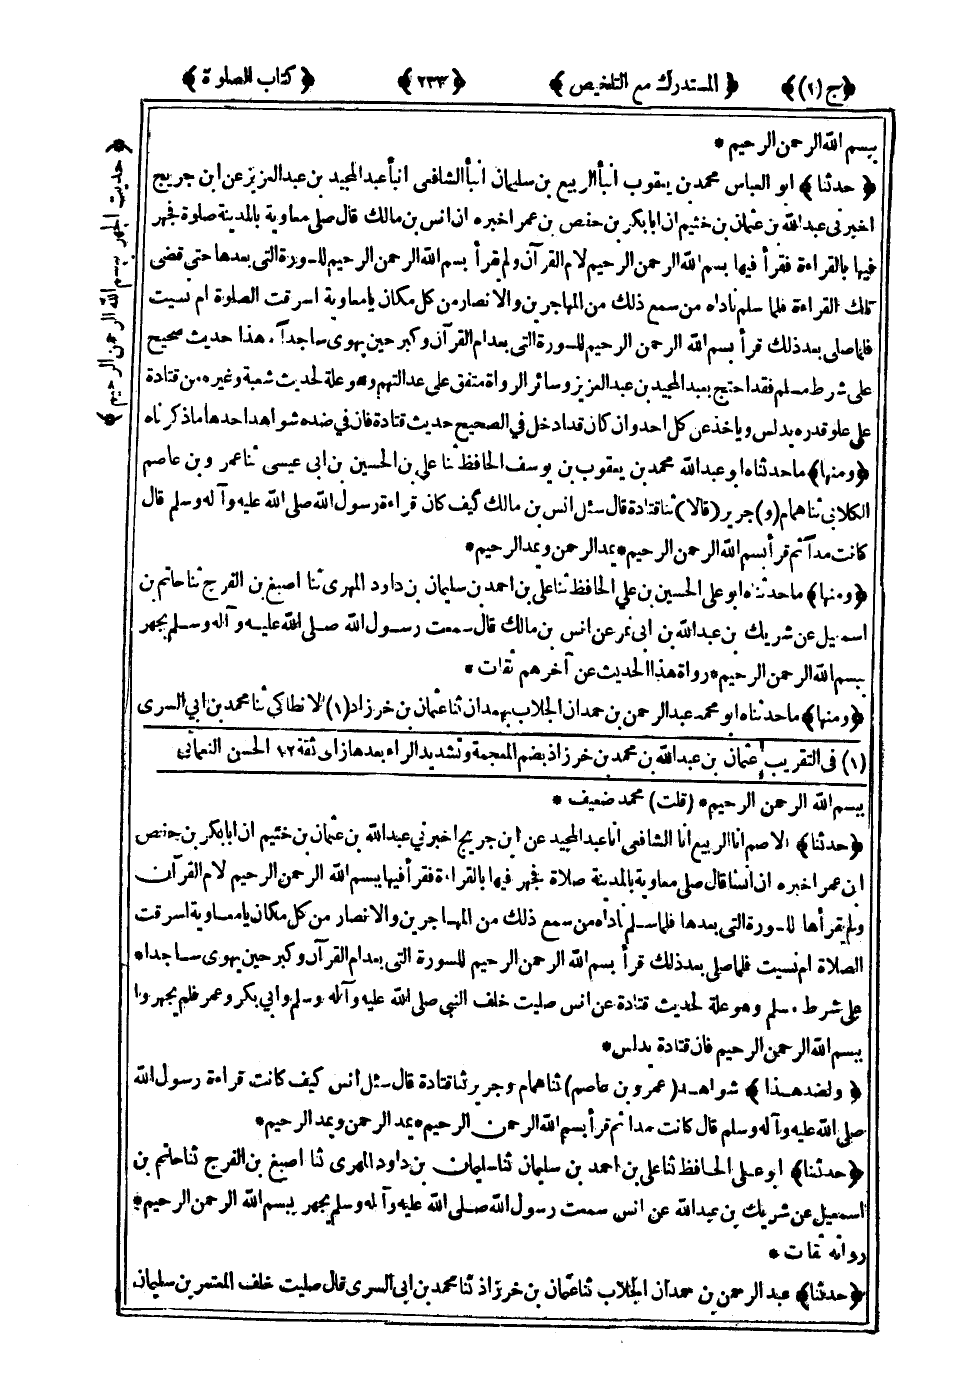 ﴿ج (١)﴾ ﴿المستدرك مع التلخيص﴾ ﴿٢٣٣﴾ ﴿كتاب الصلوة﴾
﴿حديث الجهر ببسم الله الرحمن الرحيم﴾
ببسم الله الرحمن الرحيم *
﴿حدثنا﴾ ابو العباس محمد بن يعقوب انبأ الربيع بن سليمان انبأ الشافعى انبأ عبد المجيد بن عبد العزيز عن ابن جريج
اخبرنى عبد الله بن عثمان بن خثيم ان ابا بكر بن حفص بن عمر اخبره ان انس بن مالك قال صلى معاوية بالمدينة صلوة فجهر
فيها بالقراءة فقرأ فيها بسم الله الرحمن الرحيم لام القرآن ولم يقرأ بسم الله الرحمن الرحيم للسورة التى بعدها حتى قضى
تلك القراءة فلما سلم ناداه من سمع ذلك من المهاجرين والانصار من كل مكان يا معاوية اسرقت الصلوة ام نسيت
فلما صلى بعد ذلك قرأ بسم الله الرحمن الرحيم للسورة التى بعد ام القرآن وكبر حين يهوى ساجداً . هذا حديث صحيح
على شرط مسلم فقد احتج بعبد المجيد بن عبد العزيز وسائر الرواة متفق على عدالتهم وهو علة لحديث شعبة وغيره من قتادة
على علو قدره يدلس وياخذ عن كل احد وان كان قد ادخل فى الصحيح حديث قتادة فان فى ضده شواهد احدها ما ذكرناه
﴿ومنها﴾ ما حدثناه ابو عبد الله محمد بن يعقوب بن يوسف الحافظ ثنا على بن الحسين بن ابى عيسى ثنا عمرو بن عاصم
الكلابى ثنا همام (و) جرير (قالا) ثنا قتادة قال سئل انس بن مالك كيف كان قراءة رسول الله صلى الله عليه وآله وسلم قال
كانت مداً ثم قرأ بسم الله الرحمن الرحيم * يمد الرحمن ويمد الرحيم *
﴿ومنها﴾ ما حدثناه ابو على الحسين بن علي الحافظ ثنا على بن احمد بن سليمان بن داود المهرى ثنا اصبغ بن الفرج ثنا حاتم بن
اسمعيل عن شريك بن عبد الله بن ابى نمر عن انس بن مالك قال سمعت رسول الله صلى الله عليه وآله وسلم يجهر
ببسم الله الرحمن الرحيم * رواة هذا الحديث عن آخرهم ثقات *
﴿ومنها﴾ ما حدثناه ابو محمد عبد الرحمن بن حمدان الجلاب بهمدان ثنا عثمان بن خرزاد (١) الانطاكى ثنا محمد بن ابي السرى
(١) فى التقريب عثمان بن عبد الله بن محمد بن خرزاذ بضم المعجمة وتشديد الراء بعدها زاى ثقة ١٢ الحسن النعمانى
ببسم الله الرحمن الرحيم * (قلت) محمد ضعيف *
﴿حدثنا﴾ الاصم انا الربيع انا الشافعى انا عبد المجيد عن ابن جريج اخبرنى عبد الله بن عثمان بن خثيم ان ابا بكر بن حفص
ابن عمر اخبره ان انسا قال صلى معاوية بالمدينة صلاة فجهر فيها بالقراءة فقرأ فيها ببسم الله الرحمن الرحيم لام القرآن
ولم يقرأها للسورة التى بعدها فلما سلم ناداه من سمع ذلك من المهاجرين والانصار من كل مكان يا معاوية اسرقت
الصلاة ام نسيت فلما صلى بعد ذلك قرأ بسم الله الرحمن الرحيم للسورة التى بعد ام القرآن وكبر حين يهوى ساجدا *
على شرط مسلم وهو علة لحديث قتادة عن انس صليت خلف النبى صلى الله عليه وآله وسلم وابي بكر وعمر فلم يجهروا
ببسم الله الرحمن الرحيم فان قتادة يدلس *
﴿ولضد هذا﴾ شواهد (عمرو بن عاصم) ثنا همام وجرير ثنا قتادة قال سئل أنس كيف كانت قراءة رسول الله
صلى الله عليه وآله وسلم قال كانت مدا ثم قرأ بسم الله الرحمن الرحيم * يمد الرحمن ويمد الرحيم *
﴿حدثنا﴾ ابو على الحافظ ثنا على بن احمد بن سليمان ثنا سليمان بن داود المهرى ثنا اصبغ بن الفرج ثنا حاتم بن
اسمعيل عن شريك بن عبد الله عن انس سمعت رسول الله صلى الله عليه وآله وسلم يجهر ببسم الله الرحمن الرحيم *
رواته ثقات *
﴿حدثنا﴾ عبد الرحمن بن حمدان الجلاب ثنا عثمان بن خرزاذ ثنا محمد بن ابى السرى قال صليت خلف المعتمر بن سليمان